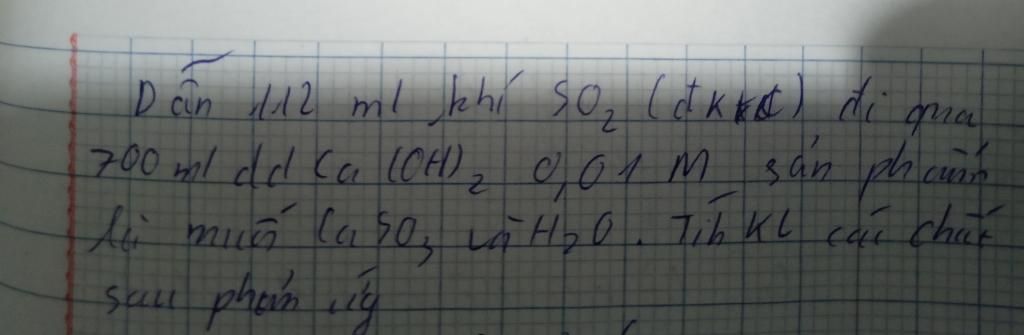 Dẫn 112 ml khí SO₂ (đktc) đi qua
700 ml dd Ca(OH)₂ 0,01 M sản phẩm
là muối CaSO₃ và H₂O. Tíh KL các chất
sau phản ứg